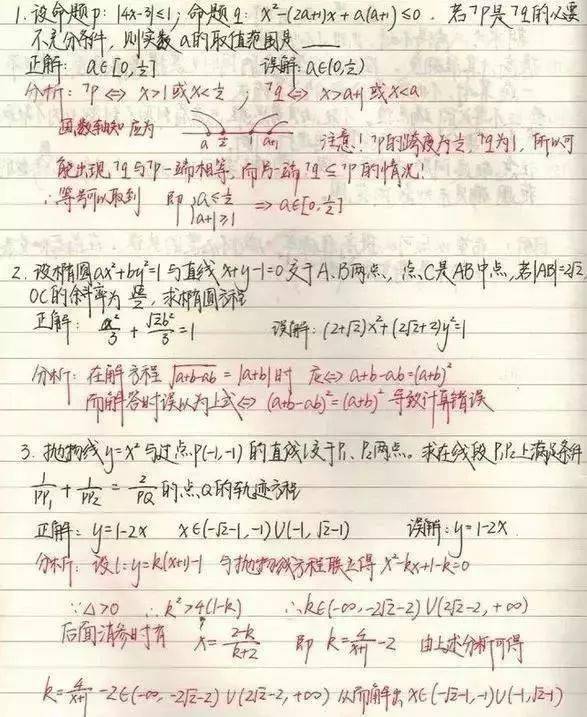 1. 设命题p: |4x-3|≤1; 命题q: x²-(2a+1)x+a(a+1)≤0. 若¬p是¬q的必要
不充分条件, 则实数a的取值范围是 ____
正解: a∈[0,½] 误解: a∈(0,½)
分析: ¬p ⇔ x>1或x<½ ; ¬q ⇔ x>a+1或x<a
因数轴知应为 a ½ 1 a+1 注意! ¬p的跨度为½, ¬q为1, 所以可
能出现¬q与¬p一端相等, 而另一端¬q≤¬p的情况!
∴等号可以取到 即 {a≤½ a+1≥1 ⇒ a∈[0,½]
2. 设椭圆ax²+by²=1与直线x+y-1=0交于A、B两点, 点C是AB中点, 若|AB|=2√2,
OC的斜率为√2/2, 求椭圆方程
正解: x²/3 + √2y²/3 =1 误解: (2+√2)x²+(2√2+2)y²=1
分析: 在解方程 √(a+b-ab) = |a+b| 时 应⇔ a+b-ab=(a+b)²
而解答时误以为上式⇔ (a+b-ab)²=(a+b)² 导致计算错误
3. 抛物线y=x²与过点P(-1,-1)的直线l交于P₁、P₂两点。求在线段P₁P₂上满足条件
1/PP₁ + 1/PP₂ = 2/PQ 的点Q的轨迹方程
正解: y=1-2x x∈(-√2-1,-1)∪(-1,√2-1) 误解: y=1-2x
分析: 设l:y=k(x+1)-1 与抛物线方程联立得 x²-kx+1-k=0
∵Δ>0 ∴k²>4(1-k) ∴k∈(-∞,-2√2-2)∪(2√2-2,+∞)
后面消参时有 x=(2-k)/(k+2) 即 k=4/(x+1)-2 由上述分析可得
k=4/(x+1)-2∈(-∞,-2√2-2)∪(2√2-2,+∞) 从而解出x∈(-√2-1,-1)∪(-1,√2-1)